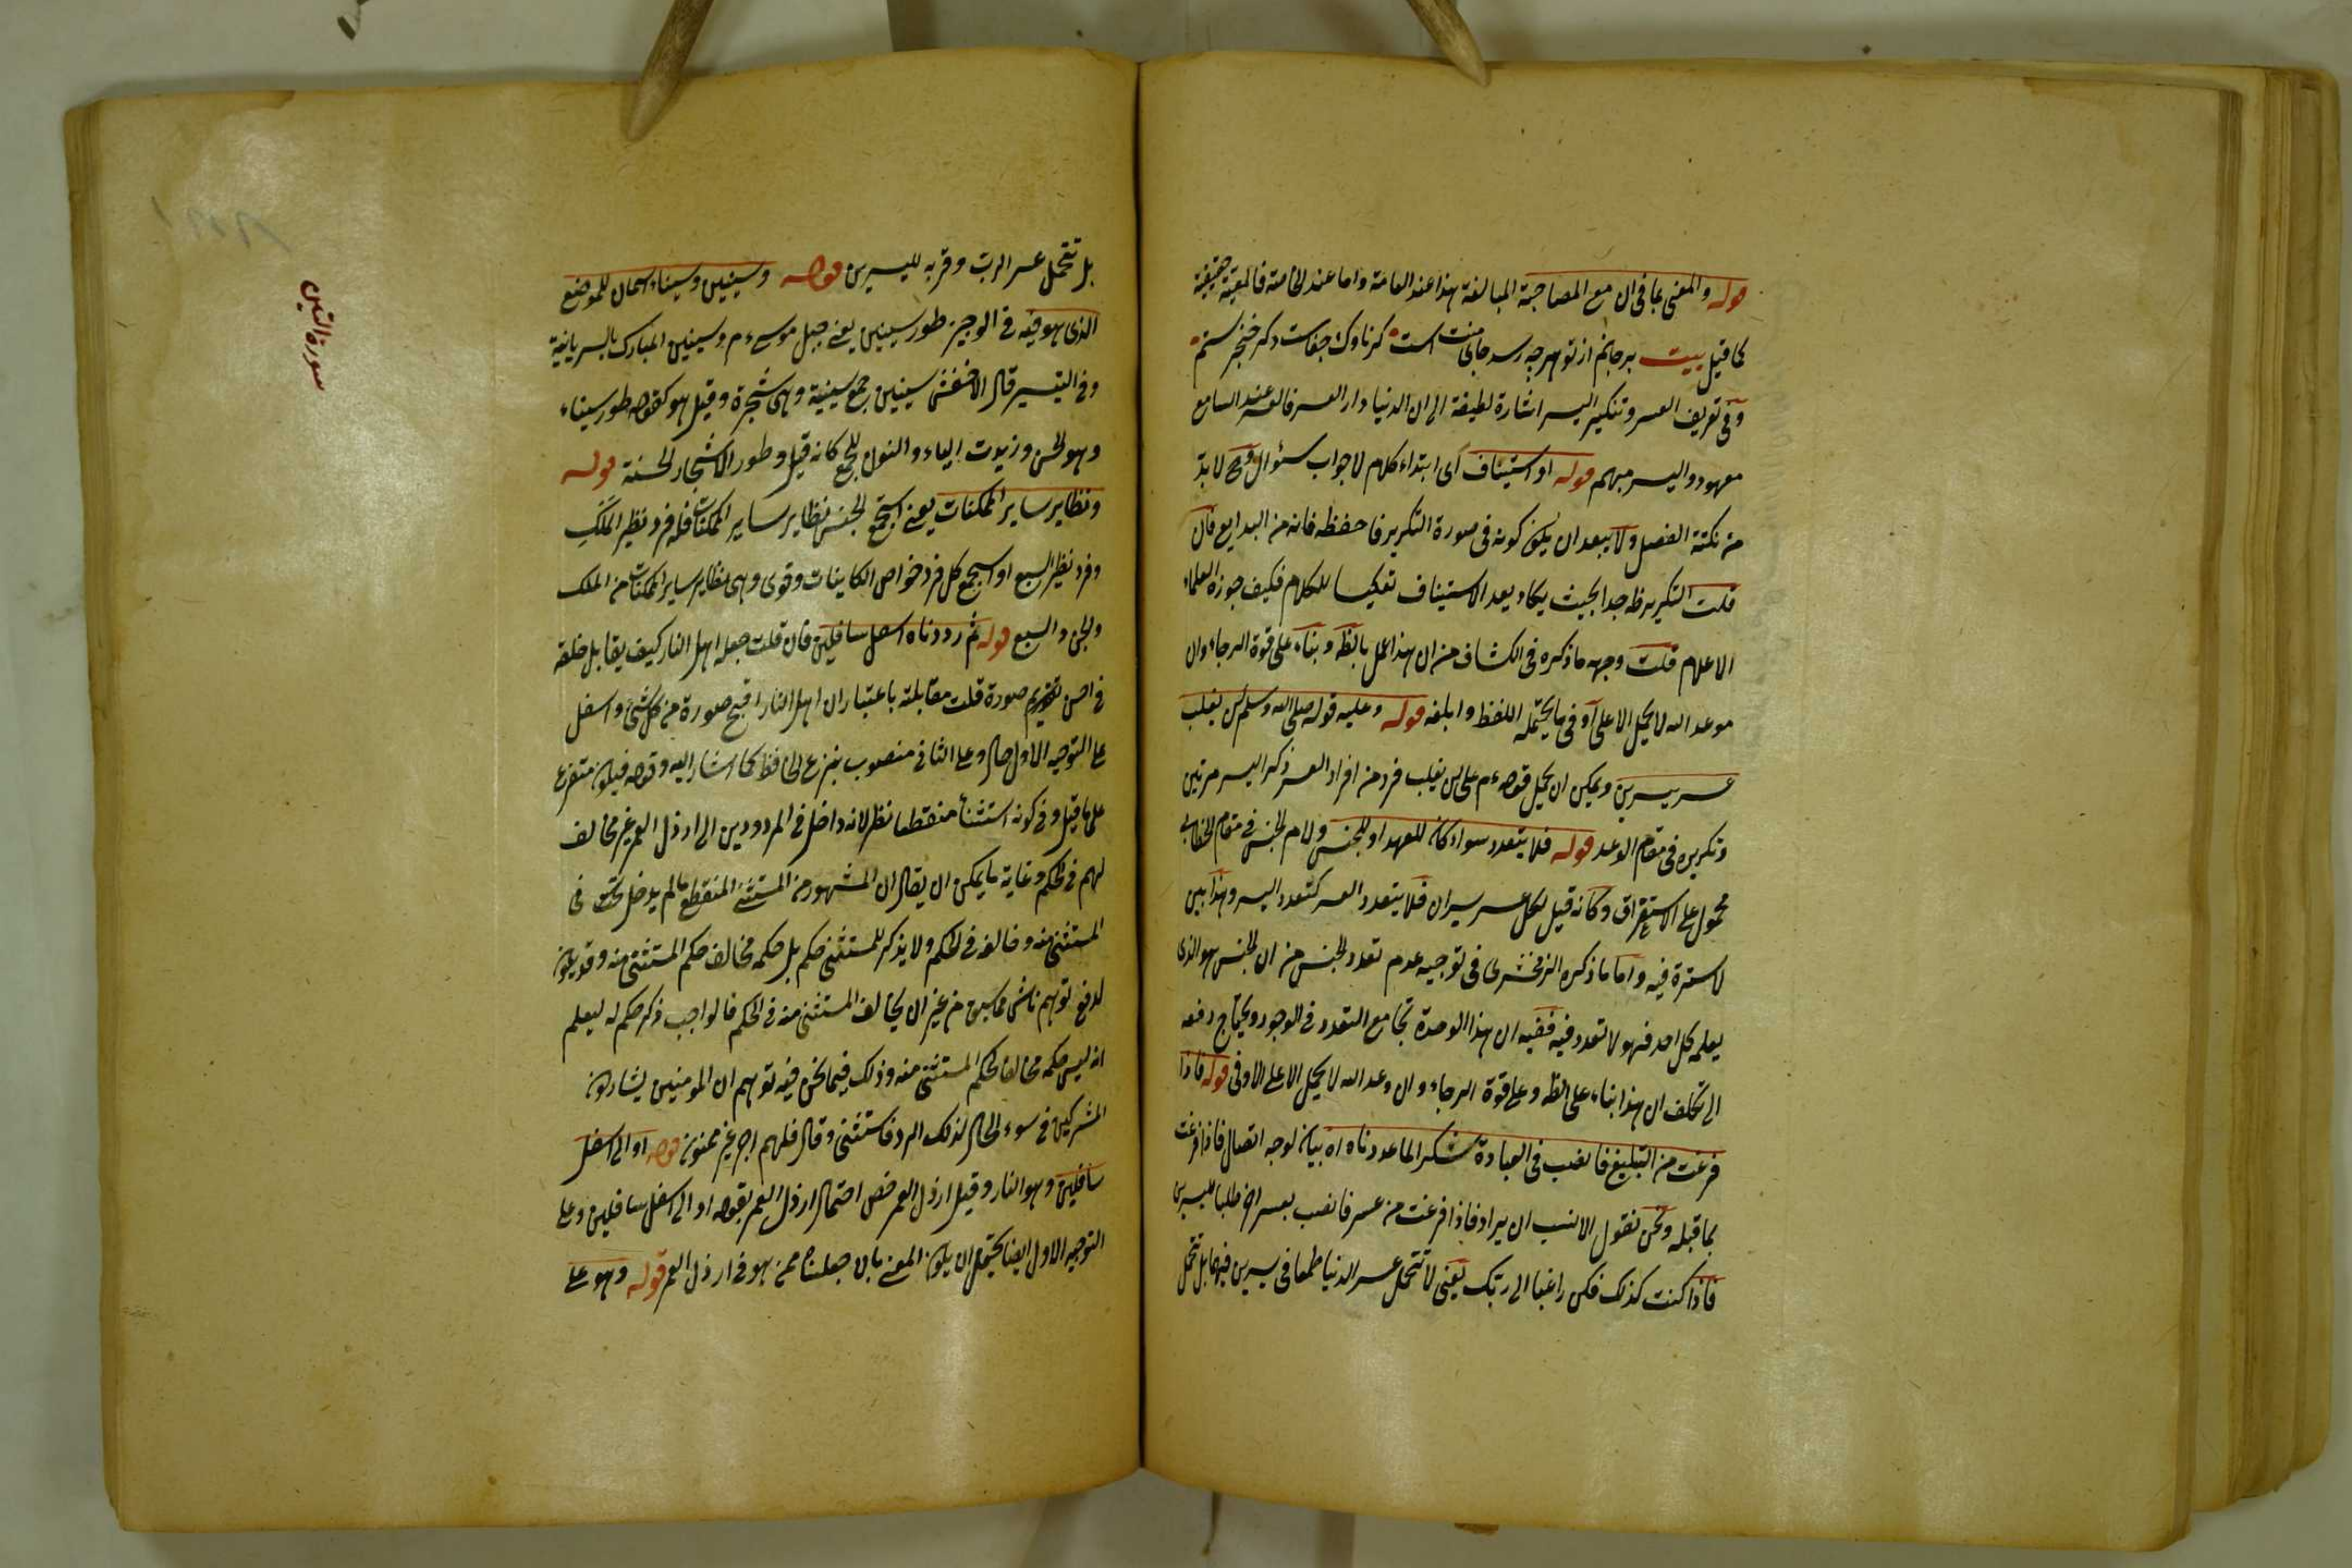 قوله والمعنى بما في ان مع المصاحبة المبالغة هذا عند العامة واما عند الخاصة فالمعية حقيقية
كما قيل بيت برجانم از تو هرچه رسد جاى منت است كر ناوك جفاست وكر خنجر ستم
وفى تعريف العسر وتنكير اليسر اشارة لطيفة الى ان الدنيا دار العسر فالعسر عند السامع
معهود واليسر مبهم قوله او استيناف اى ابتداء كلام لا جواب سئوال وح لا بد
من نكتة الفصل ولا يبعد ان يكون كونه فى صورة التكرير فاحفظه فانه من البدايع فان
قلت التكرير ظه جدا بحيث يكاد يعد الاستيناف تعكيسا للكلام فكيف جوزه العلماء
الاعلام قلت وجهه ما ذكره فى الكشاف من ان هذا عمل بالظه وبناء على قوة الرجاء وان
موعد الله لا يحمل الا على اوفى ما يحتمله اللفظ وابلغه قوله وعليه قوله صلى الله وسلم لن يغلب
عسر يسرين ويمكن ان يحمل قوله ءم على لن يغلب فرد من افراد العسر ذكر اليسر مرتين
وتكريره فى مقام الوعد قوله فلا يتعدد سواء كان للعهد او للجنس ولام الجنس فى مقام الخطابى
محمول على الاستغراق وكانه قيل لكل عسر يسران فلا يتعدد العسر كتعدد اليسر وهذا بين
لا سترة فيه واما ما ذكره الزمخشرى فى توجيه عدم تعدد الجنس من ان الجنس هو الذى
يعلمه كل احد فهو لا تعدد فيه ففيه ان هذا الوحدة تجامع التعدد فى الوجود ويحتاج دفعه
الى تكلف ان هذا بناء على الظه وعلى قوة الرجاء وان وعد الله لا يحمل الا على الاوفى قوله فاذا
فرغت من التبليغ فانصب فى العبادة شكرا لما عددناه اه بيان لوجه اتصال فاذا فرغت
بما قبله ونحن نقول الانسب ان يراد فاذا فرغت من عسر فانصب بعسر اخر طلبا لليسرين
فاذا كنت كذلك فكن راغبا الى ربك يعنى لا تتحمل عسر الدنيا طمعا فى يسرين فيها بل تحمل
بل تتحمل عسر الرب وقربه لليسرين قوله وسينين وسيناء اسمان للموضع
الذى هو فيه فى الوجيز طور سينين يعنى جبل موسى ءم وسينين المبارك بالسريانية
وفى التيسير قال الاخفش سينين جمع سينية وهى شجرة وقيل هو كقوله طور سيناء
وهو الحسن وزيدت الياء والنون للجمع كانه قيل وطور الاشجار الحسنة قوله
ونظاير ساير الممكنات يعنى استجمع الجنس نظاير ساير الممكنات فله فرد نظير الملك
وفرد نظير السبع او استجمع كل فرد خواص الكاينات وقوى وهى نظاير ساير الممكنات من الملك
والجن والسبع قوله ثم رددناه اسفل سافلين فان قلت جعله اهل النار كيف يقابل خلقه
فى احسن تقويم صورة قلت مقابلته باعتبار ان اهل النار اقبح صورة من كل شئ واسفل
على التوجيه الاول حال وعلى الثانى منصوب بنزع الخافض كما اشار اليه وقوله فيكون متفرع
على ما قيل وفى كونه استثناء منقطعا نظر لانه داخل فى المردودين الى ارذل العمر غير مخالف
لهم فى الحكم وغاية ما يمكن ان يقال ان المشهور من المستثنى المنقطع ما لم يدخل تحت فى
المستثنى منه وخالفه فى الحكم ولا يذكر للمستثنى حكم بل حكمه مخالف حكم المستثنى منه وقد يكون
لدفع توهم ناشى مما سبق من غير ان يخالف المستثنى منه فى الحكم فالواجب ذكر حكم له ليعلم
انه ليس حكمه مخالفا لحكم المستثنى منه وذلك فيما نحن فيه توهم ان المومنين يشاركون
المشركين فى سوء الحال لذلك الرد فاستثنى وقال فلهم اجر غير ممنون قوله او الى اسفل
سافلين وهو النار وقيل ارذل العمر خص احتمال ارذل العمر بقوله او الى اسفل سافلين وعلى
التوجيه الاول ايضا يحتمل ان يكون المعنى بان جعلناه ممن هو فى ارذل العمر قوله وهو على
سورة التين